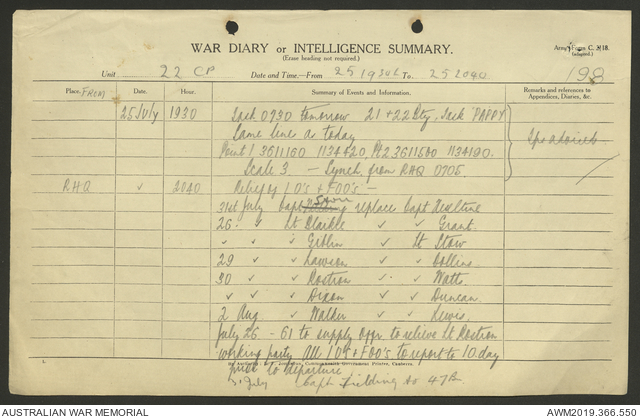 WAR DIARY or INTELLIGENCE SUMMARY.
(Erase heading not required.)
Army Form C. 2118.
(adapted)
Unit 22 CP
Date and Time.—From 251930L To 252040
198
Place. FROM Date. Hour. Summary of Events and Information. Remarks and references to Appendices, Diaries, &c.
25 July 1930 Task 0730 tomorrow 21 & 22 Bty. Task PAPPY
Same line as today
Point 1 3611160 1134420. Pt 2 3611500 1134190.
Scale 3 — Synch. from RHQ 0705.
RHQ ✓ 2040 Relief of LO's & FOO's —
31st July Capt Stow replace Capt Heseltine
26 " Lt Blaikie " " Grant.
" " " Giblin " Lt Stow
29 " " Lawson " " Collins
30 " " Rostron " " Watts
" " " Dixon " " Duncan.
2 Aug " Walker " " Lewis.
July 26 - 61 to supply offr. to relieve Lt Rostron
working party All LO's & FOO's to report to 10 day
prior to departure
31 July Capt Fielding to 47B
AUSTRALIAN WAR MEMORIAL
AWM2019.366.550